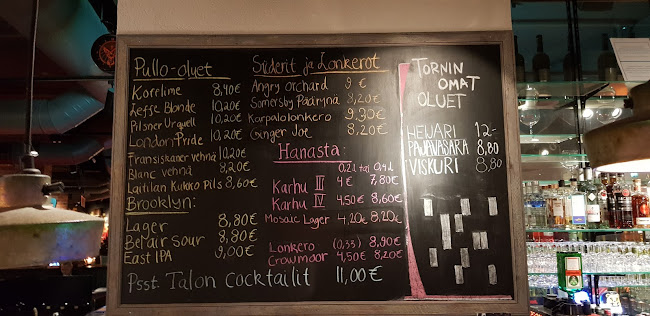 Pullo-oluet
Koreline 8,40€
Leffe Blonde 10,20€
Pilsner Urquell 10,20€
London Pride 10,20€
Fransiskaner vehnä 10,20€
Blanc vehnä 8,20€
Laitilan Kukko Pils 8,60€
Brooklyn:
Lager 8,80€
Bel air Sour 8,80€
East IPA 9,00€
Siderit ja Lonkerot
Angry Orchard 9 €
Somersby Päärynä 8,20€
Karpalolonkero 9,30€
Ginger Joe 8,20€
Hanasta:
0,2l tai 0,4l
Karhu III 4 € 7,80€
Karhu IV 4,50€ 8,60€
Mosaic Lager 4,20€ 8,20€
Lonkero (0,33) 8,90€
Crowmoor 4,50€ 8,20€
Psst. Talon Cocktailit 11,00€
TORNIN
OMAT
OLUET
HEIJARI 12-
PAJAVASARA 8,80
VISKURI 8,80